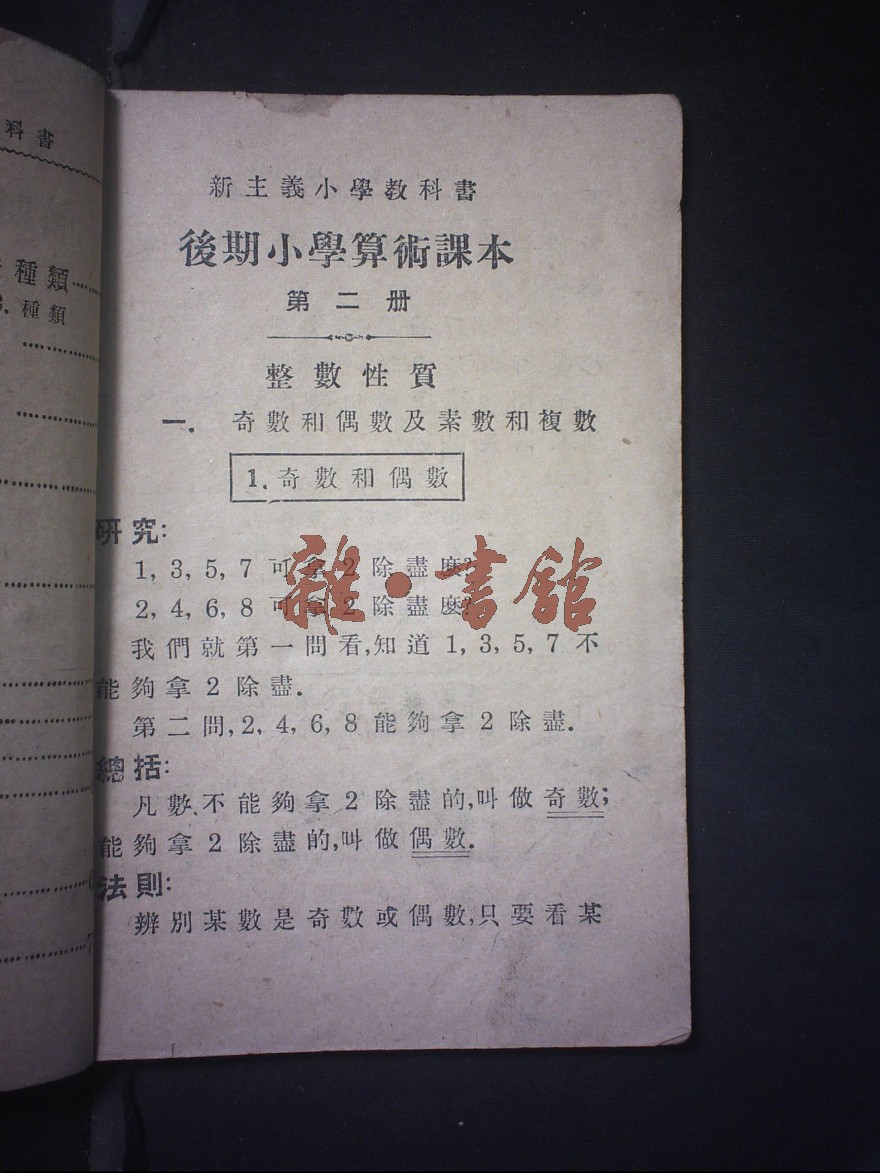 科書
種類
種類
新主義小學教科書
後期小學算術課本
第二册
整數性質
一. 奇數和偶數及素數和複數
1. 奇數和偶數
研究:
1, 3, 5, 7 可拿 2 除盡麽?
2, 4, 6, 8 可拿 2 除盡麽?
我們就第一問看,知道 1, 3, 5, 7 不
能夠拿 2 除盡.
第二問, 2, 4, 6, 8 能夠拿 2 除盡.
總括:
凡數、不能夠拿 2 除盡的,叫做奇數;
能夠拿 2 除盡的,叫做偶數.
法則:
辨別某數是奇數或偶數,只要看某
雜·書館